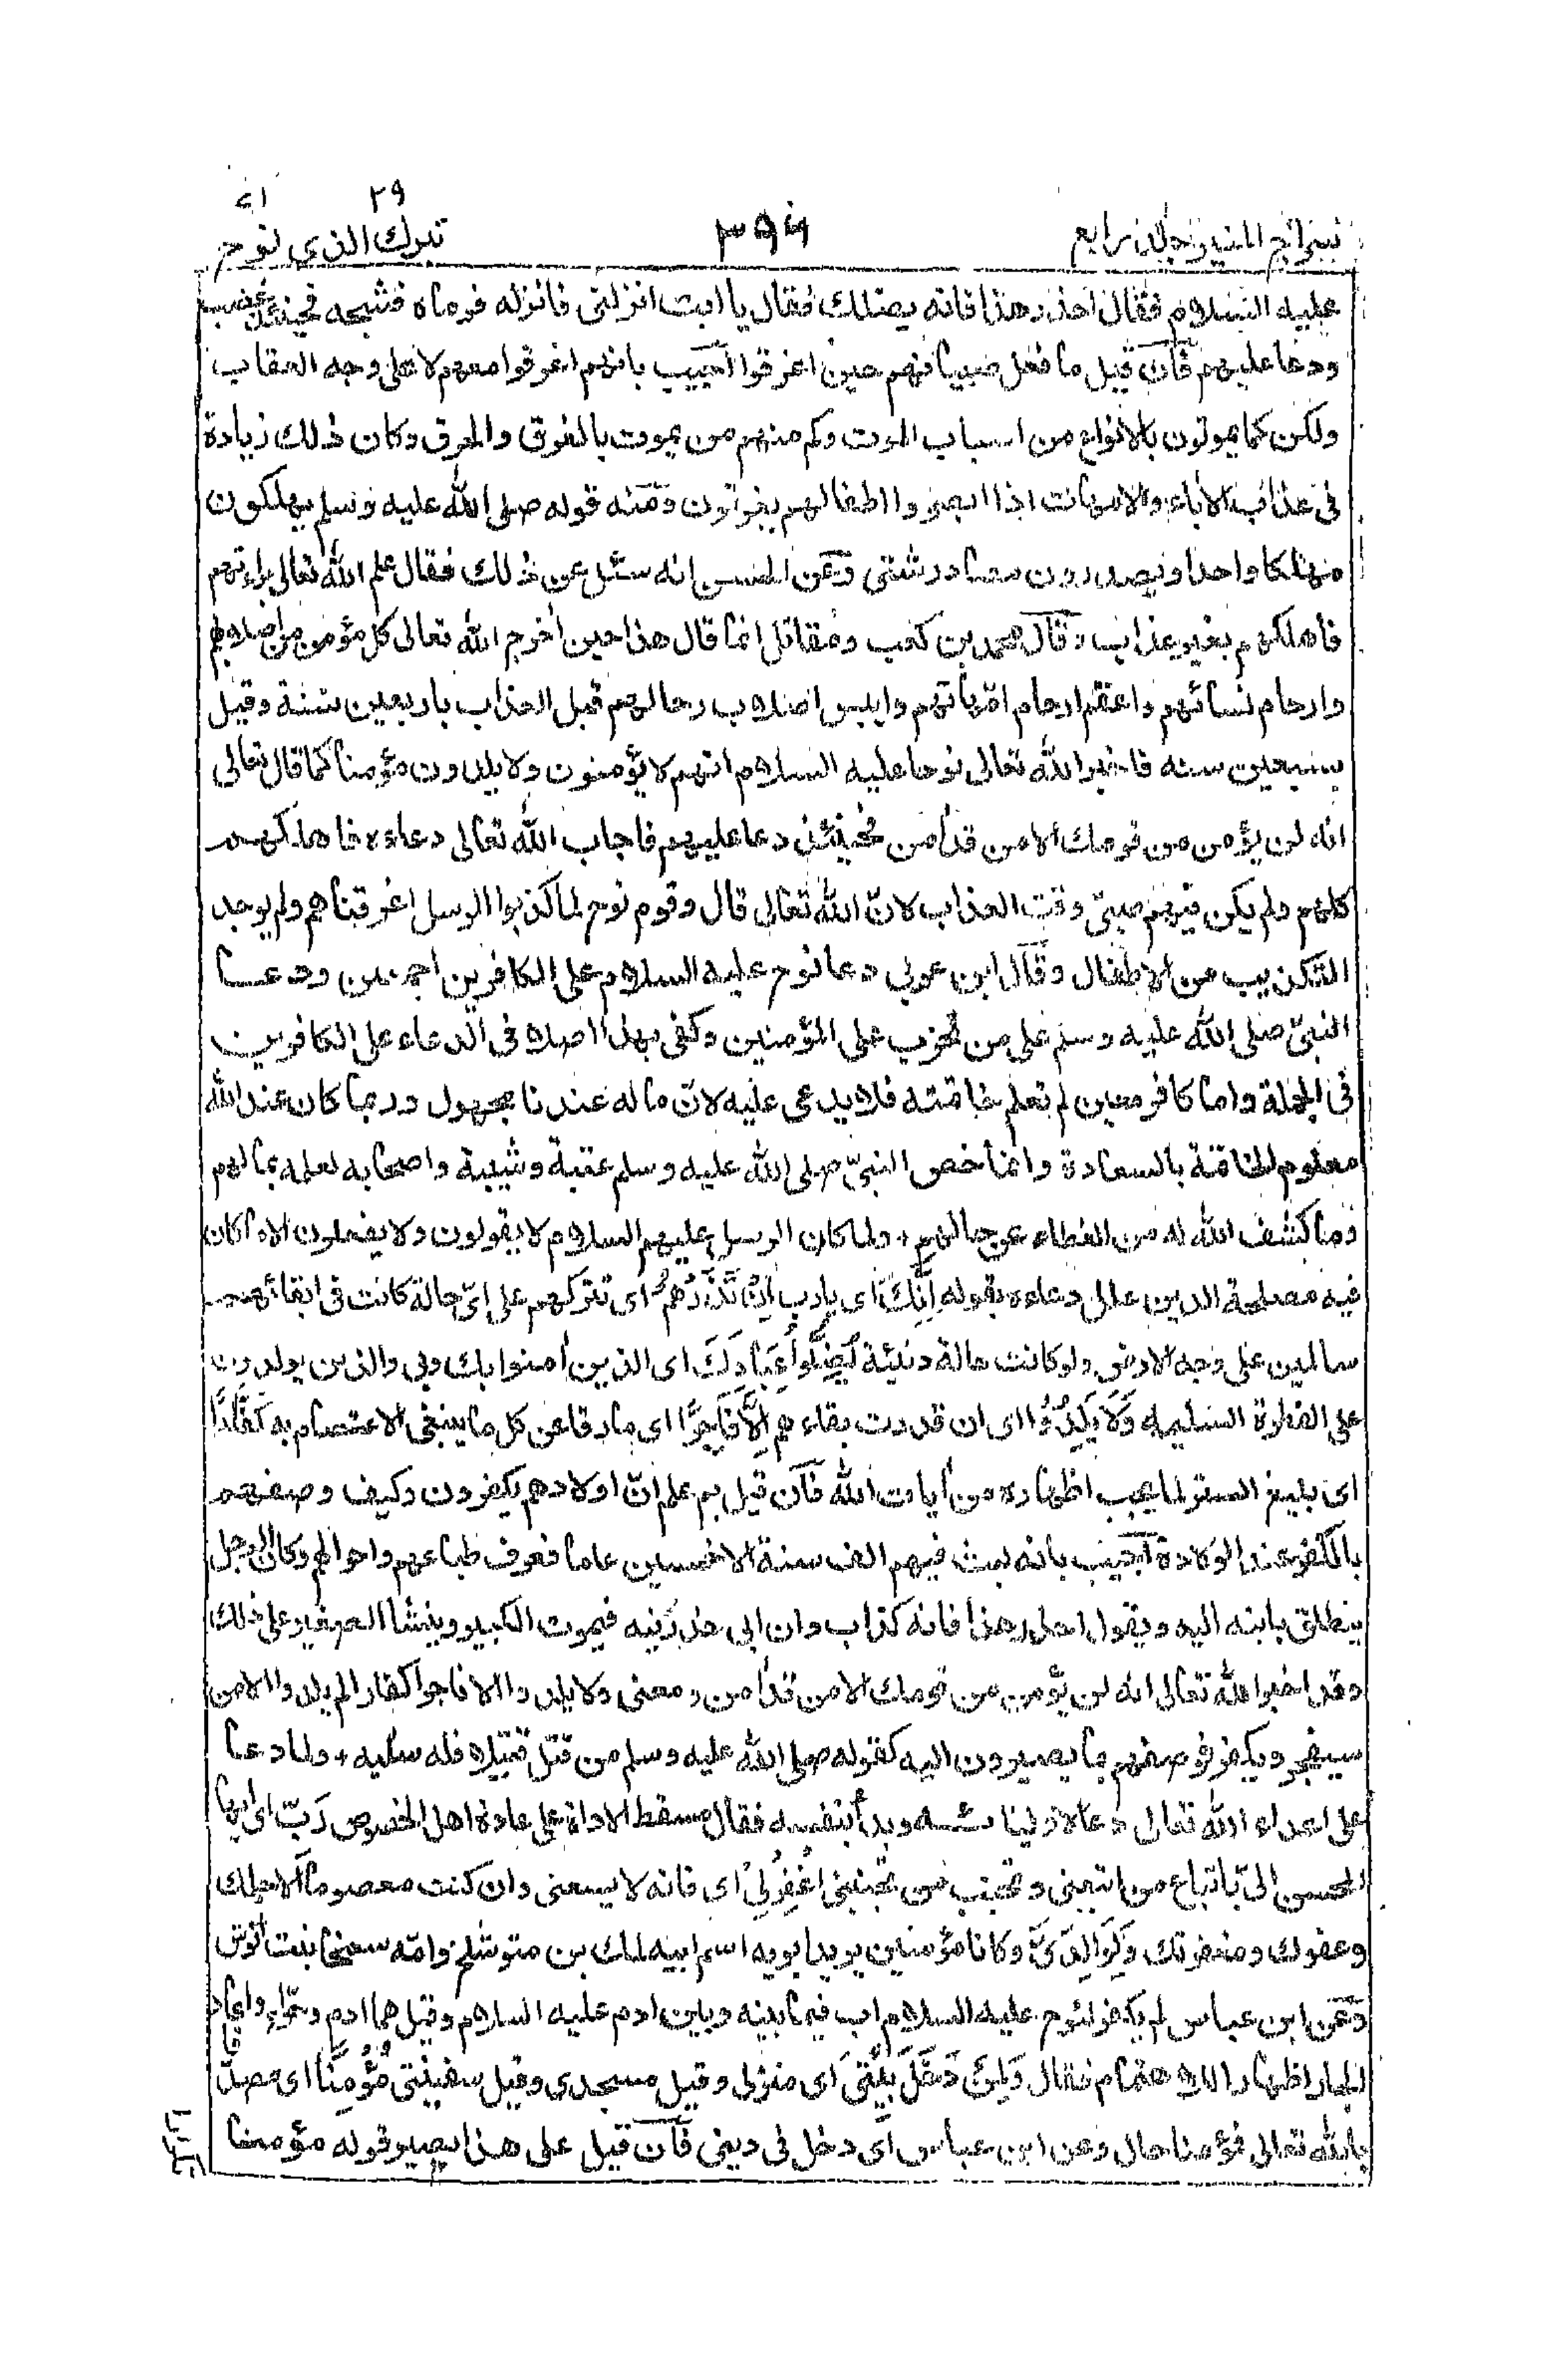 سراج المنير جلد رابع ٣٩٤ تبرك الذى ٢٩ نوح ٧١
عليه السلام فقال احذر هذا فانه يضلك فقال يا ابت انزلنى فانزله فرماه فشجه فحينئذ غضب
ودعا عليهم فان قيل ما فعل صبيانهم حين اغرقوا اجيب بانهم اغرقوا معهم لا على وجه العقاب
ولكن كما يموتون بالانواع من اسباب الموت وكم منهم من يموت بالغرق والحرق وكان ذلك زيادة
فى عذاب الاٰباء والامهات اذا ابصروا اطفالهم يغرقون ومنه قوله صلى الله عليه وسلم يهلكون
مهلكا واحدا ويصدرون مصادر شتى وعن الحسن انه سئل عن ذلك فقال علم الله تعالى براءتهم
فاهلكهم بغير عذاب وقال محمد بن كعب ومقاتل انما قال هذا حين اخرج الله تعالى كل مؤمن من اصلابهم
وارحام نسائهم واعقم ارحام امّهاتهم وايبس اصلاب رجالهم قبل العذاب باربعين سنة وقيل
بسبعين سنه فاخبر الله تعالى نوحا عليه السلام انهم لا يؤمنون ولا يلدون مؤمنا كما قال تعالى
انه لن يؤمن من قومك الا من قد اٰمن فحينئذ دعا عليهم فاجاب الله تعالى دعاءه فاهلكهم
كلهم ولم يكن فيهم صبىّ وقت العذاب لانّ الله تعالى قال وقوم نوح لما كذبوا الرسل اغرقناهم ولم يوجد
التكذيب من الاطفال وقال ابن عربى دعا نوح عليه السلام على الكافرين اجمعين ودعا
النبىّ صلى الله عليه وسلم على من تحزب على المؤمنين وكفى بهذا اصلا فى الدعاء على الكافرين
فى الجملة واما كافر معين لم تعلم خاتمته فلا يدعى عليه لانّ ما له عندنا مجهول وربما كان عند الله
معلوم الخاتمة بالسعادة وانما خص النبىّ صلى الله عليه وسلم عتبة وشيبة واصحابه لعلمه بمالهم
وما كشف الله له من الغطاء عن حالهم ولما كان الرسل عليهم السلام لا يقولون ولا يفعلون الا ما كان
فيه مصلحة الدين علل دعاءه بقوله اِنَّكَ اى يارب اِنْ تَذَرْهُمْ اى تتركهم على اىّ حالة كانت فى ابقائهم
سالمين على وجه الارض ولو كانت حالة دنيئة يُضِلُّوا عِبَادَكَ اى الذين اٰمنوا بك وبى والذين يولدون
على الفطرة السليمه وَلَا يَلِدُوْا اى ان قدرت بقاءهم اِلَّا فَاجِرًا اى مارقا عن كل ما ينبغى الاعتصام به كَفَّارًا
اى بليغ الستر لما يجب اظهاره من اٰيات الله فان قيل بم علم انّ اولادهم يكفرون وكيف وصفهم
بالكفر عند الولادة اجيب بانه لبث فيهم الف سنة الا خمسين عاما فعرف طباعهم واحوالهم وكان الرجل
ينطلق بابنه اليه ويقول احذر هذا فانه كذاب وان ابى حذرنيه فيموت الكبير وينشا الصغير على ذلك
وقد اخبر الله تعالى انه لن يؤمن من قومك الا من قد اٰمن ومعنى ولا يلدوا الا فاجرا كفارا لم يلدوا الا من
سيفجر ويكفر فوصفهم بما يصيرون اليه كقوله صلى الله عليه وسلم من قتل قتيلا فله سلبه ولما دعا
على اعداء الله تعالى دعا لاوليائه وبدأ بنفسه فقال مسقط الاداة على عادة اهل الخصوص رَبّ اى ايها
المحسن الىّ باتباع من اتبعنى وتجنب من تجنبنى اغْفِرْ لِىْ اى فانه لا يسعنى وان كنت معصوما الا حلمك
وعفوك ومغفرتك وَلِوَالِدَىَّ وكانا مؤمنين يريد ابويه اسم ابيه لمك بن متوشلخ وامّه سمخا بنت انوش
وعن ابن عباس لم يكفر لنوح عليه السلام اب فيما بينه وبين ادم عليه السلام وقيل هما ادم وحوّاء واعاد
الجار اظهارا للاهتمام فقال وَلِمَنْ دَخَلَ بَيْتِىَ اى منزلى وقيل مسجدى وقيل سفينتى مُؤْمِنًا اى مصدّقا
بالله تعالى فمؤمنا حال وعن ابن عباس اى دخل فى دينى فان قيل على هذا يصير قوله مؤمنا